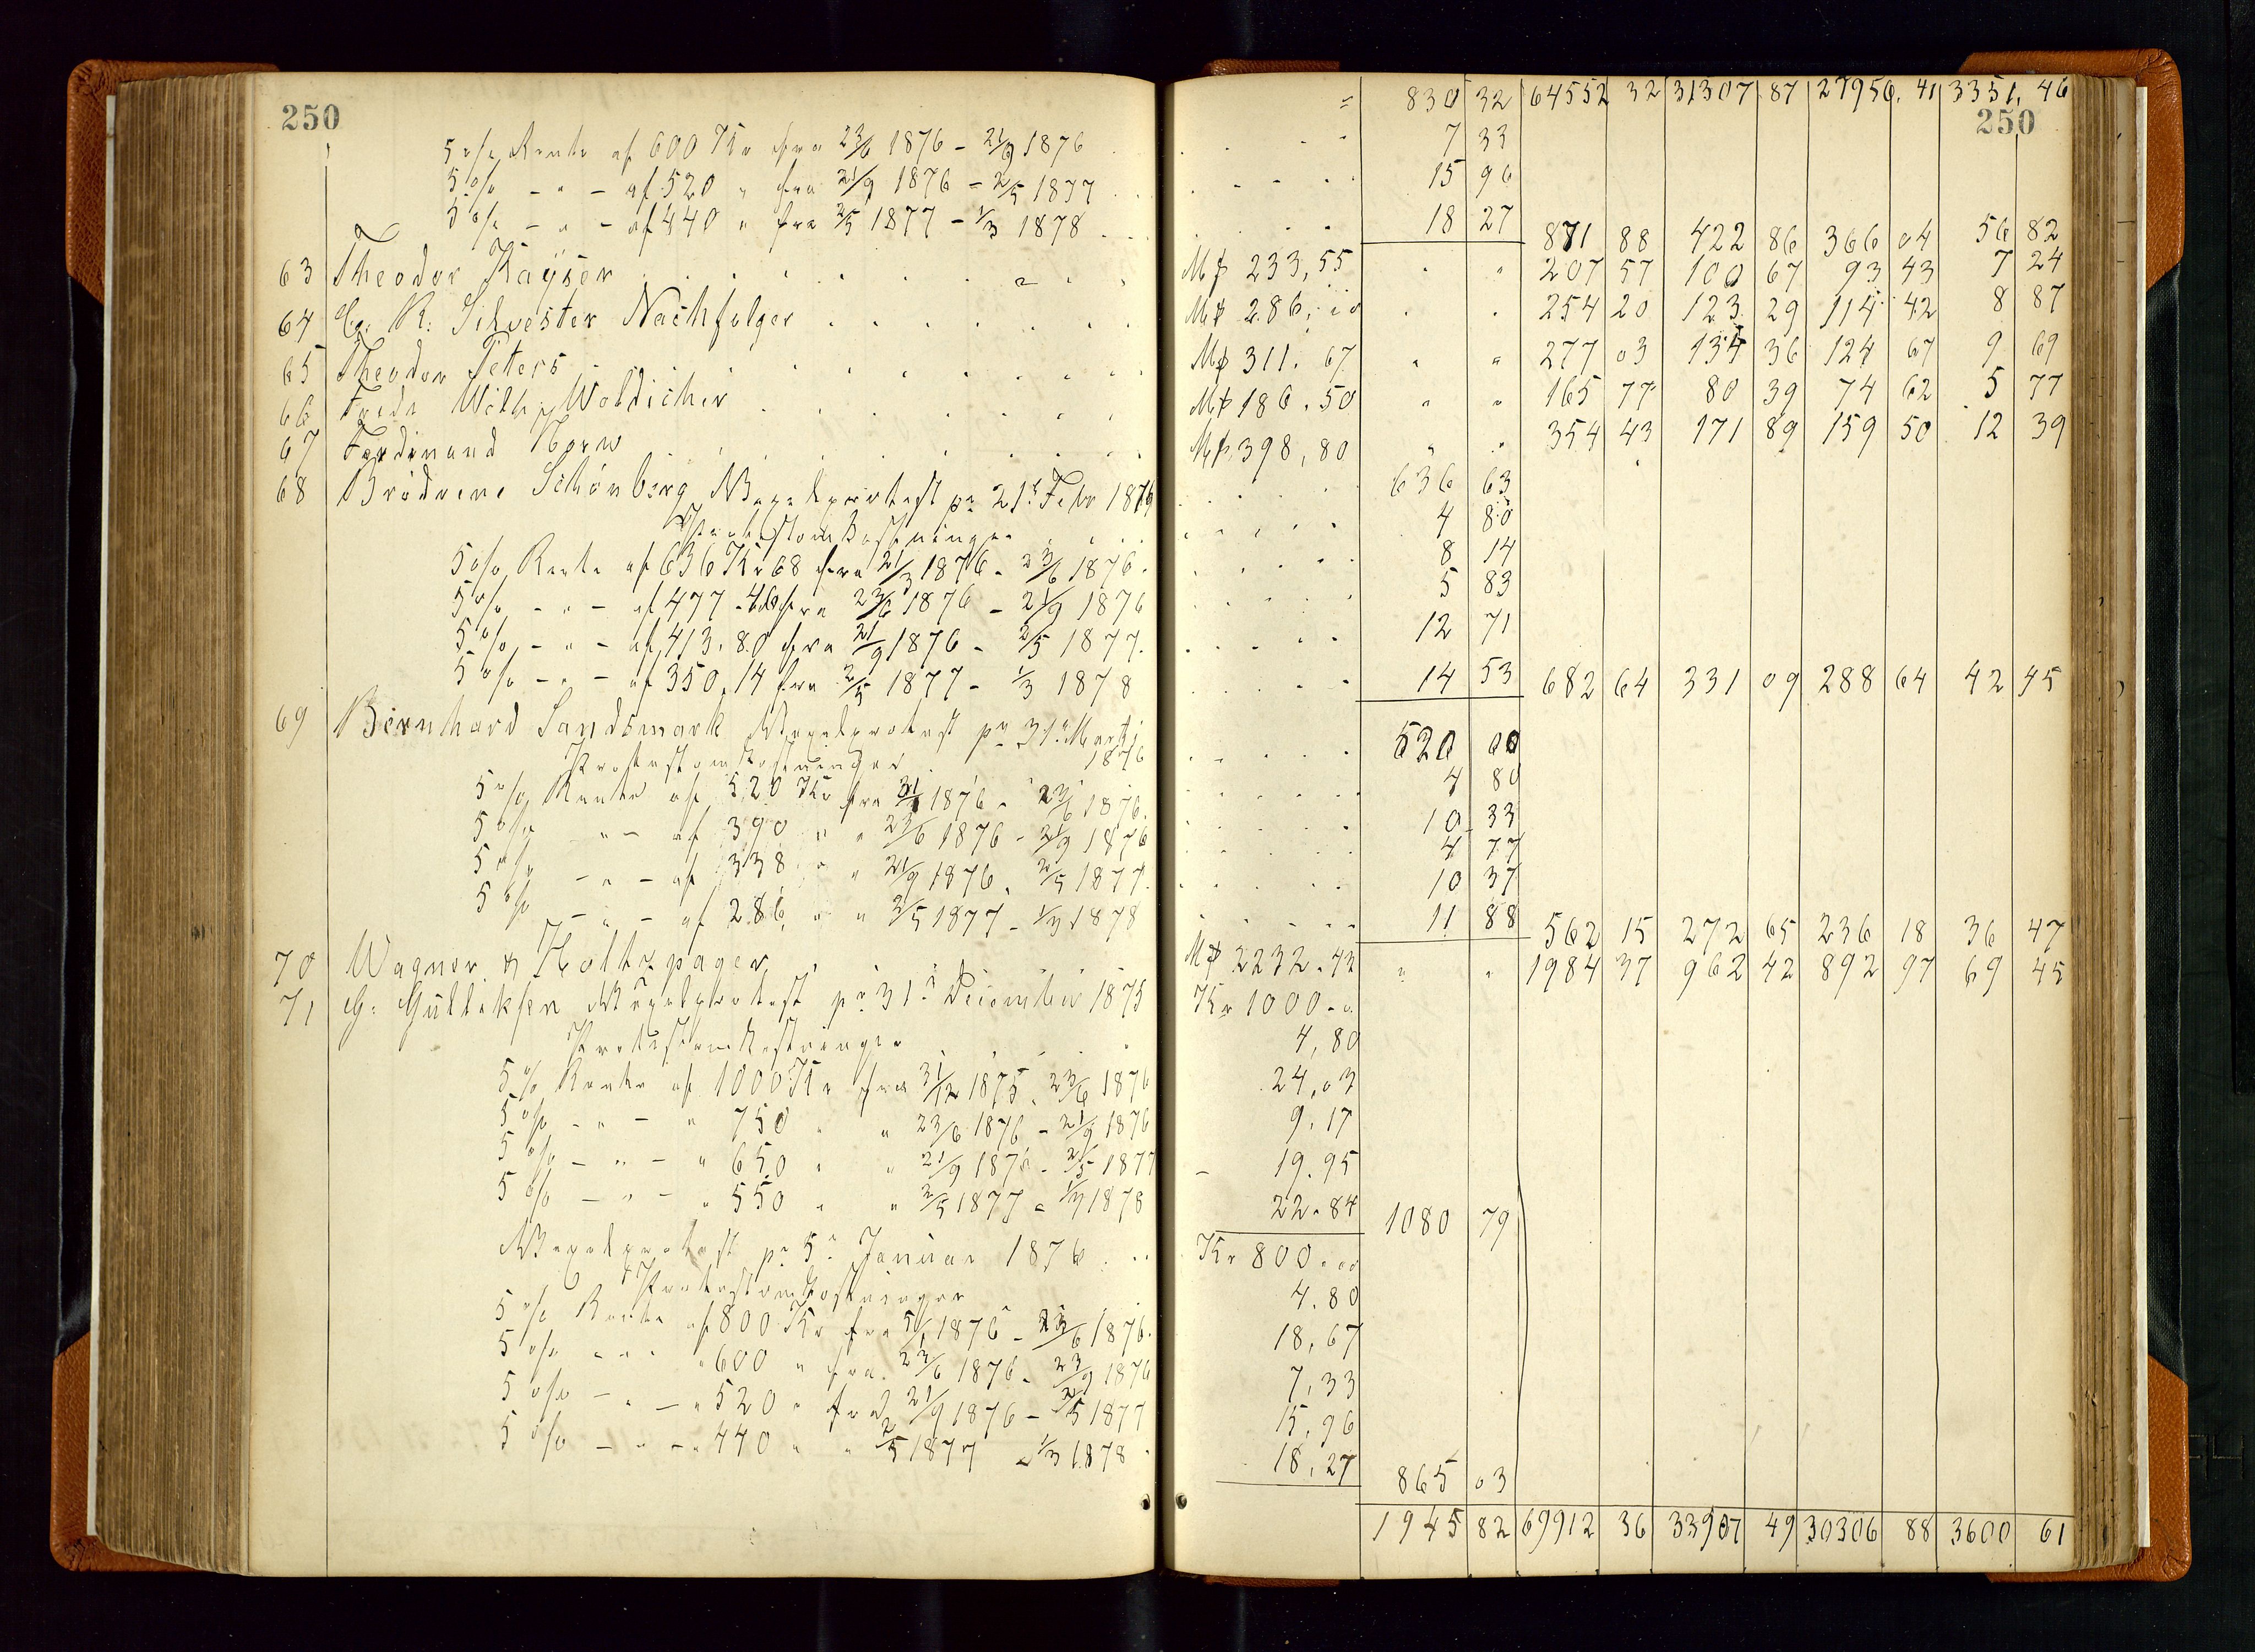 250
= 830 32 64552 32 31307 87 27956. 41 3351. 46
250
5 o/o Rente af 600 Kr fra 23/6 1876 - 21/9 1876 7 33
5 o/o - " - af 520 " fra 21/9 1876 - 2/5 1877 15 96
5 o/o - " - af 440 " fra 2/5 1877 - 1/3 1878 18 27 871 88 422 86 366 04 56 82
63 Theodor Kayser M₰ 233,55 " " 207 57 100 67 93 43 7 24
64 R: Silvester Nachfolger M₰ 286, " " 254 20 123 29 114 42 8 87
65 Theodor Peters M₰ 311. 67 " " 277 03 134 36 124 67 9 69
66 M₰ 186. 50 " " 165 77 80 39 74 62 5 77
67 Ferdinand M₰ 398, 80 " " 354 43 171 89 159 50 12 39
68 Brödrene Schönberg Vexelprotest pr 21r Febr 636 63
Protestomkostninger 4 80
5 o/o Rente af 636 Kr 68 fra 21/3 1876 - 23/6 1876 8 14
5 o/o - " - af 477 - 46 fra 23/6 1876 - 21/9 1876 5 83
5 o/o - " - af 413. 80 fra 21/9 1876 - 2/5 1877. 12 71
5 o/o - " - af 350. 14 fra 2/5 1877 - 1/3 1878 14 53 682 64 331 09 288 64 42 45
69 Bernhard Sandsmark Vexelprotest pr 31r Marts
1876 520 00
Protestomkostninger 4 80
5 o/o Rente af 520 Kr fra 1876 - 23/6 1876. 10 33
5 o/o " - af 390 " " 23/6 1876 - 21/9 1876 4 77
5 o/o - " - af 338 " " 21/9 1876. 2/5 1877. 10 37
5 o/o - " - af 286 " " 2/5 1877 - 1/3 1878 11 88 562 15 272 65 236 18 36 47
70 Wagner & M₰ 2232. 43 " " 1984 37 962 42 892 97 69 45
71 G. Gulliksen Vexelprotest pr 31r December 1875 Kr 1000 - "
Protestomkostninger 4, 80
5 o/o Rente af 1000 Kr fra 31/12 1875. 23/6 1876 24,03
5 o/o - " - " 750 " " 23/6 1876 - 21/9 1876 9. 17
5 o/o - " - " 650 " " 21/9 1876 - 2/5 1877 19. 95
5 o/o - " - " 550 " " 2/5 1877 - 1/3 1878 22. 84 1080 79
Vexelprotest pr 5r Januar 1876 Kr 800. 00
Protestomkostninger 4. 80
5 o/o Rente af 800 Kr fra 5/1 1876 - 23/6 1876. 18, 67
5 o/o " " " 600 " fra 23/6 1876 - 23/9 1876 7, 33
5 o/o - " - " 520 " fra 21/9 1876 - 2/5 1877 15, 96
5 o/o - " - " 440 " " 2/5 1877 - 1/3 1878 18, 27 865 03
1945 82 69912 36 33907 49 30306 88 3600 61